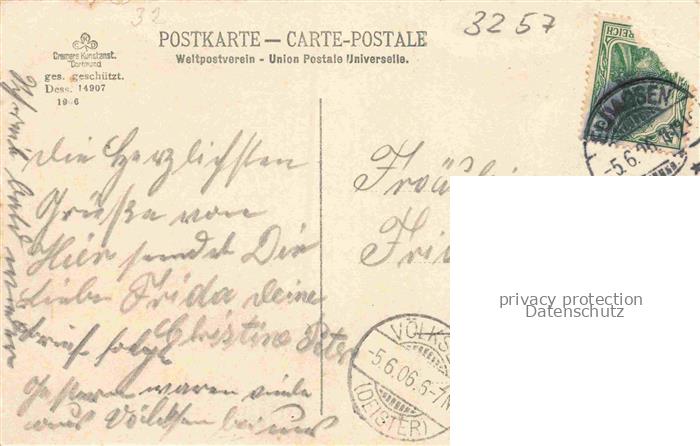 32
3257
POSTKARTE — CARTE-POSTALE
Weltpostverein - Union Postale Universelle.
Cramers Kunstanst.
Dortmund
ges. geschützt.
Dess. 14907
1906
REICH
-5.6.06
die herzlichsten
Grüße von
Hier sendet Dir
liebe Frida deine
Christine Peter
Brief folgt
Gestern waren viele
aus Völksen bei uns
Fräulein
Frid
VÖLKSE
-5.6.06.6-7N
(DEISTER)
privacy protection
Datenschutz